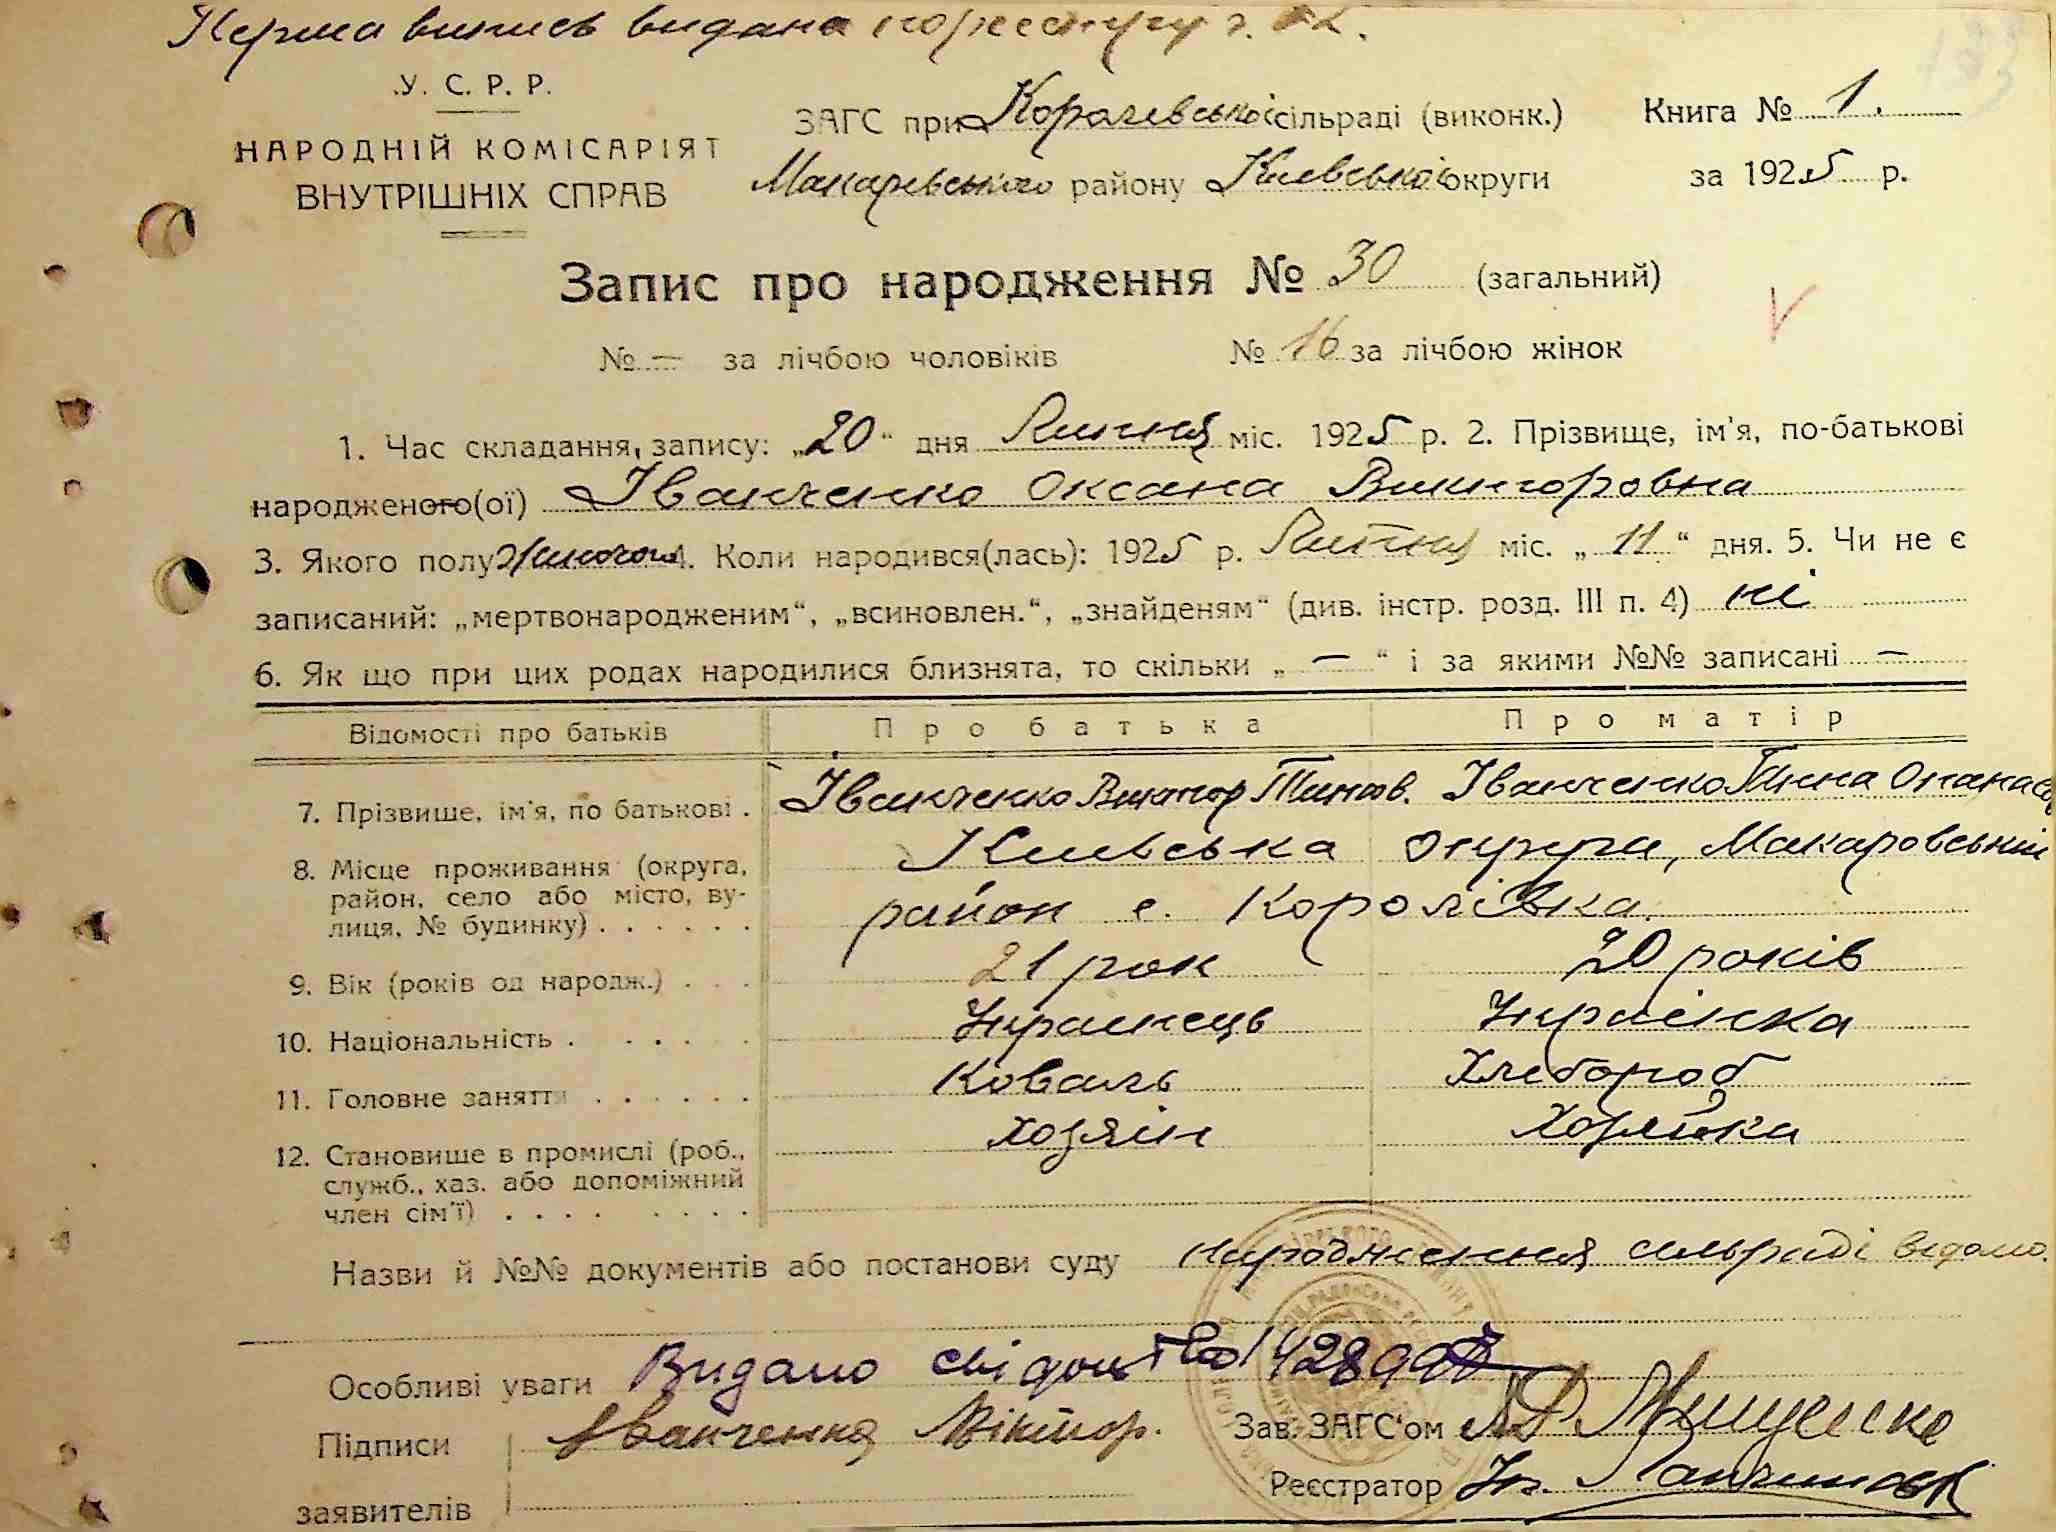 Перша випись видана по реєстру з. №2.
У. С. Р. Р.
НАРОДНІЙ КОМІСАРІЯТ
ВНУТРІШНІХ СПРАВ
ЗАГС при сільраді (виконк.)
Макарівського району Київської округи
Книга № 1.
за 1925 р.
Запис про народження № 30 (загальний)
№ — за лічбою чоловіків № 16 за лічбою жінок
1. Час складання запису: „20“ дня Липня міс. 1925 р. 2. Прізвище, ім'я, по-батькові
народженого(ої) Іванченко Оксана Викторовна
3. Якого полу Жиночого 4. Коли народився(лась): 1925 р. Липня міс. „11“ дня. 5. Чи не є
записаний: „мертвонародженим“, „всиновлен.“, „знайденям“ (див. інстр. розд. III п. 4) ні
6. Як що при цих родах народилися близнята, то скільки „ — “ і за якими №№ записані —
Відомості про батьків Про батька Про матір
7. Прізвище, ім'я, по батькові . Іванченко Виктор Іванченко Опанасов
8. Місце проживання (округа, район, село або місто, вулиця, № будинку) . . . . . . Киівська округа, Макаровський
район с. Королівка.
9. Вік (років од народж.) . . . 21 рок 20 років
10. Національність . . . . Украинець Украінка
11. Головне заняття . . . . . . Коваль Хлебороб
12. Становище в промислі (роб., служб., хаз. або допоміжний член сім'ї) . . . . . . . . Хозяін Хозяйка
Назви й №№ документів або постанови суду народження сільраді відомо.
Особливі уваги Видано свідоцтво
Підписи Іванченко Віктор. Зав. ЗАГС'ом
заявителів Реєстратор